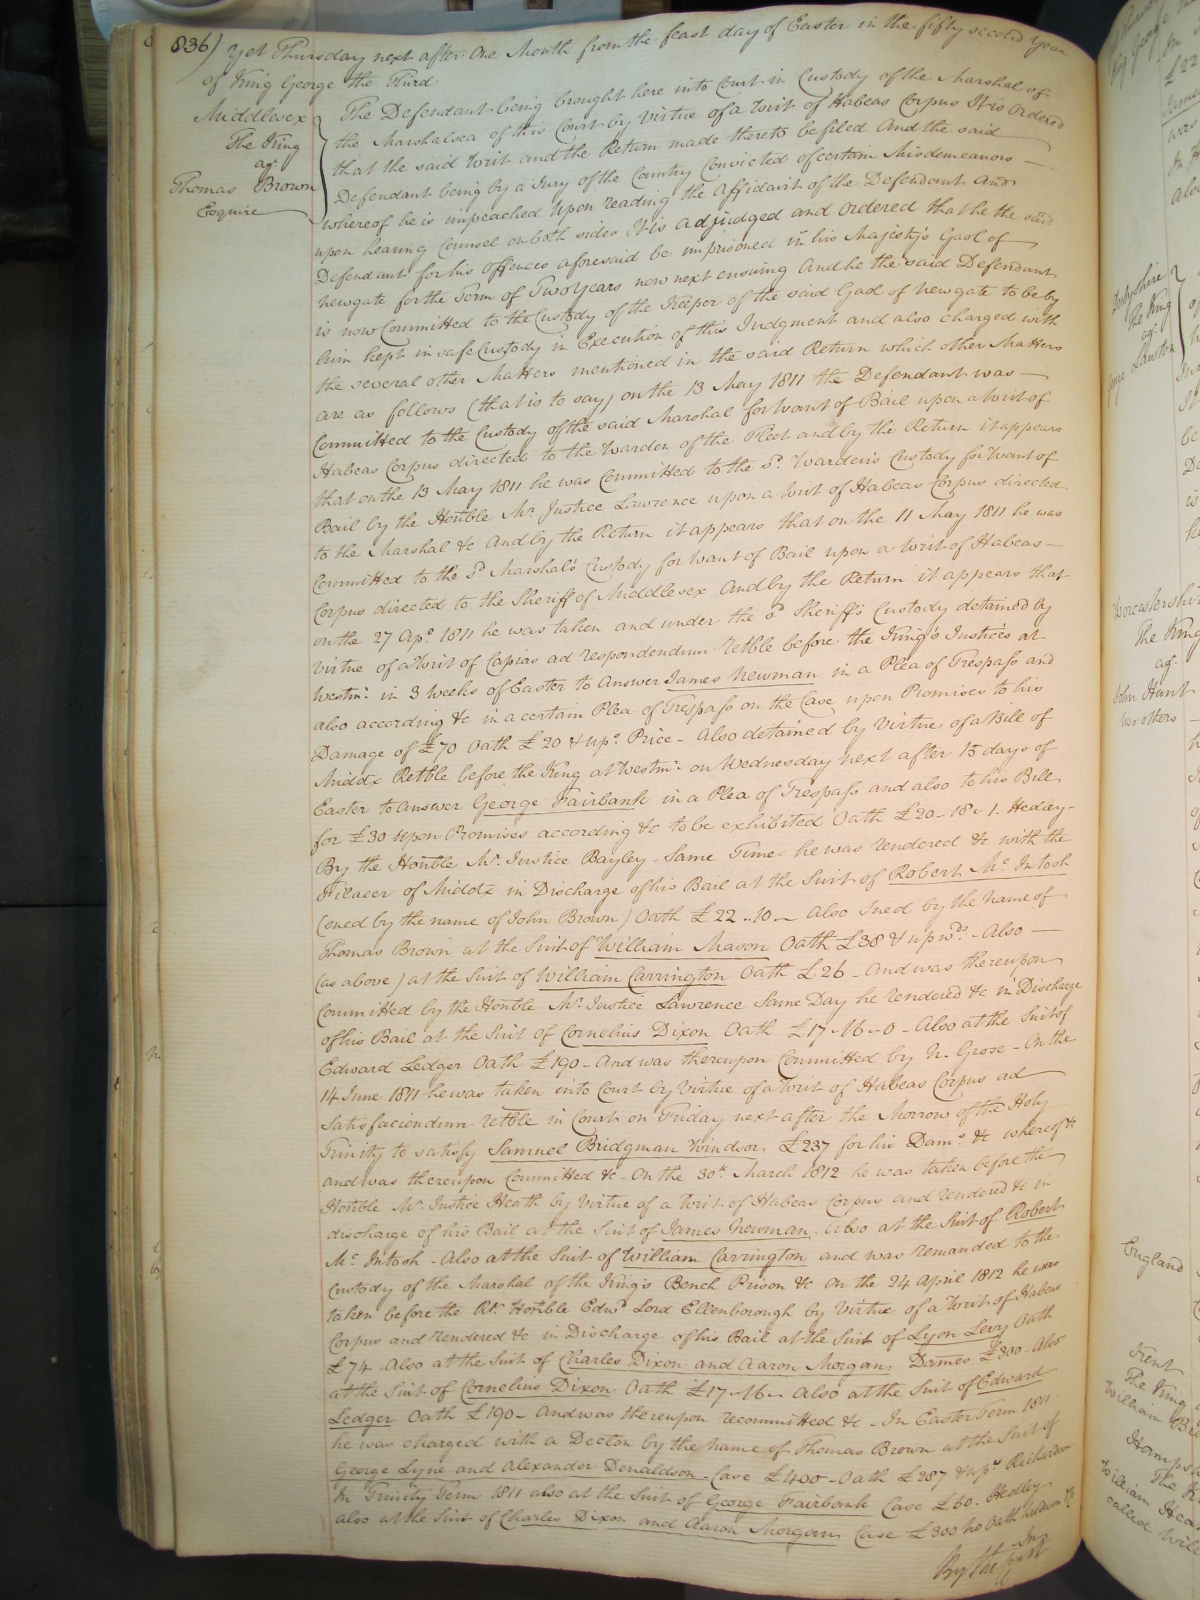 836) Yet Thursday next after One Month from the feast day of Easter in the fifty second Year
of King George the Third
Middlesex
The King
agt
Thomas Brown
Esquire
The Defendant being brought here into Court in Custody of the Marshal of
the Marshalsea of this Court by Virtue of a Writ of Habeas Corpus It is Ordered
that the said Writ and the Return made thereto be filed And the said
Defendant being by a Jury of the Country Convicted of certain Misdemeanors
whereof he is impeached Upon reading the Affidavit of the Defendant And
upon hearing Counsel on both sides It is adjudged and Ordered that he the said
Defendant for his offences aforesaid be imprisoned in his Majesty's Gaol of
Newgate for the Term of Two Years now next ensuing And he the said Defendant
is now Committed to the Custody of the Keeper of the said Gaol of Newgate to be by
him kept in safe Custody in Execution of this Judgment and also charged with
the several other Matters mentioned in the said Return which other Matters
are as follows (that is to say) on the 13 May 1811 the Defendant was
Committed to the Custody of the said Marshal for Want of Bail upon a Writ of
Habeas Corpus directed to the Warden of the Fleet and by the Return it appears
that on the 13 May 1811 he was Committed to the sd. Warden's Custody for Want of
Bail by the Honble Mr. Justice Lawrence upon a Writ of Habeas Corpus directed
to the Marshal &c And by the Return it appears that on the 11 May 1811 he was
Committed to the sd. Marshal's Custody for want of Bail upon a Writ of Habeas
Corpus directed to the Sheriff of Middlesex And by the Return it appears that
on the 27 Apl. 1811 he was taken and under the sd. Sheriff's Custody detained by
virtue of a Writ of Capias ad respondendum retble before the King's Justices at
Westmr. in 3 weeks of Easter to Answer James Newman in a Plea of Trespass and
also according &c in a certain Plea of Trespass on the Case upon Promises to his
Damage of £70 Oath £20 & upds. Price - Also detained by Virtue of a Bill of
Middx Retble before the King at Westmr. on Wednesday next after 15 days of
Easter to answer George Fairbank in a Plea of Trespass and also to his Bill
for £30 Upon Promises according &c to be exhibited Oath £20..18..1. Hedley-
By the Honble Mr. Justice Bayley - Same Time he was rendered &c with the
Filacer of Middx in Discharge of his Bail at the Suit of Robert Mc. Intosh
(sued by the name of John Brown) Oath £22..10.. Also Sued by the name of
Thomas Brown at the Suit of William Mason Oath £38 & upwds. - Also
(as above) at the Suit of William Carrington Oath £26 - And was thereupon
Committed by the Honble Mr. Justice Lawrence Same Day he rendered &c in Discharge
of his Bail at the Suit of Cornelius Dixon Oath £17-16-0 - Also at the Suit of
Edward Ledger Oath £190 - And was thereupon Committed by N. Grose - On the
14 June 1811 he was taken into Court by Virtue of a Writ of Habeas Corpus ad
Satisfaciendum retble in Court on Friday next after the Morrow of the Holy
Trinity to satisfy Samuel Bridgman Windsor, £237 for his Dams. &c whereof &c
and was thereupon Committed &c - On the 30th March 1812 he was taken before the
Honble Mr. Justice Heath by Virtue of a Writ of Habeas Corpus and rendered &c in
discharge of his Bail at the Suit of James Newman. Also at the Suit of Robert
Mc. Intosh - Also at the Suit of William Carrington and was remanded to the
Custody of the Marshal of the King's Bench Prison &c On the 24 April 1812 he was
taken before the Rt. Honble Edwd Lord Ellenborough by Virtue of a Writ of Habeas
Corpus and rendered &c in Discharge of his Bail at the Suit of Lyon Levy Oath
£74 - Also at the Suit of Charles Dixon and Aaron Morgan, Dames £300 - Also
at the Suit of Cornelius Dixon Oath £17-16- Also at the Suit of Edward
Ledger Oath £190 - And was thereupon recommitted &c - In Easter Term 1811
he was charged with a Decton by the name of Thomas Brown at the Suit of
George Lyne and Alexander Donaldson - Case £400 - Oath £287 & upds Richardson
In Trinity Term 1811 also at the Suit of George Fairbank Case £60. Hedley
also at the Suit of Charles Dixon and Aaron Morgan Case £300 No Oath
By the Court
Derbyshire
The King
agt
Lawton
Worcestershire
The King
agt.
John Hunt
two others
England
Kent
The King
William
Hampsh
The K
William Hea
called Will